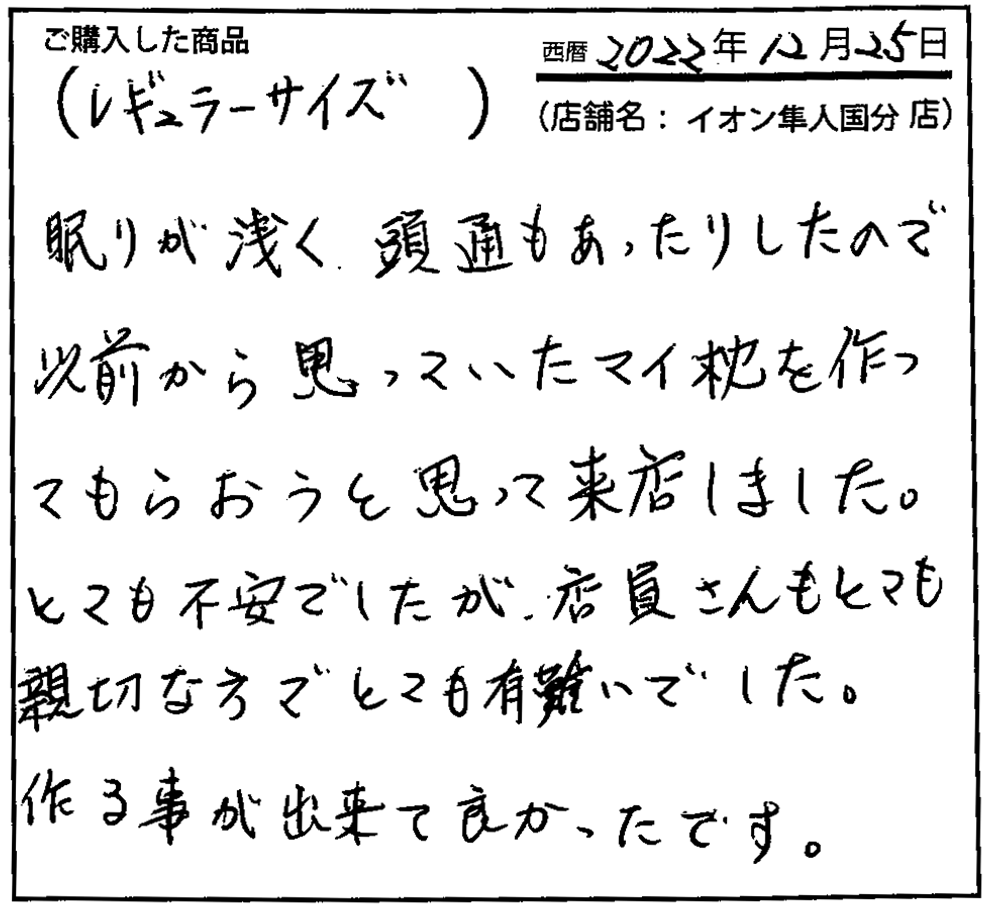 ご購入した商品
西暦 2022年 12月25日
(レギュラーサイズ )
(店舗名： イオン隼人国分 店)
眠りが浅く、頭通もあったりしたので
以前から思っていたマイ枕を作っ
てもらおうと思って来店しました。
とても不安でしたが、店員さんもとても
親切な方でとても有難いでした。
作る事が出来て良かったです。